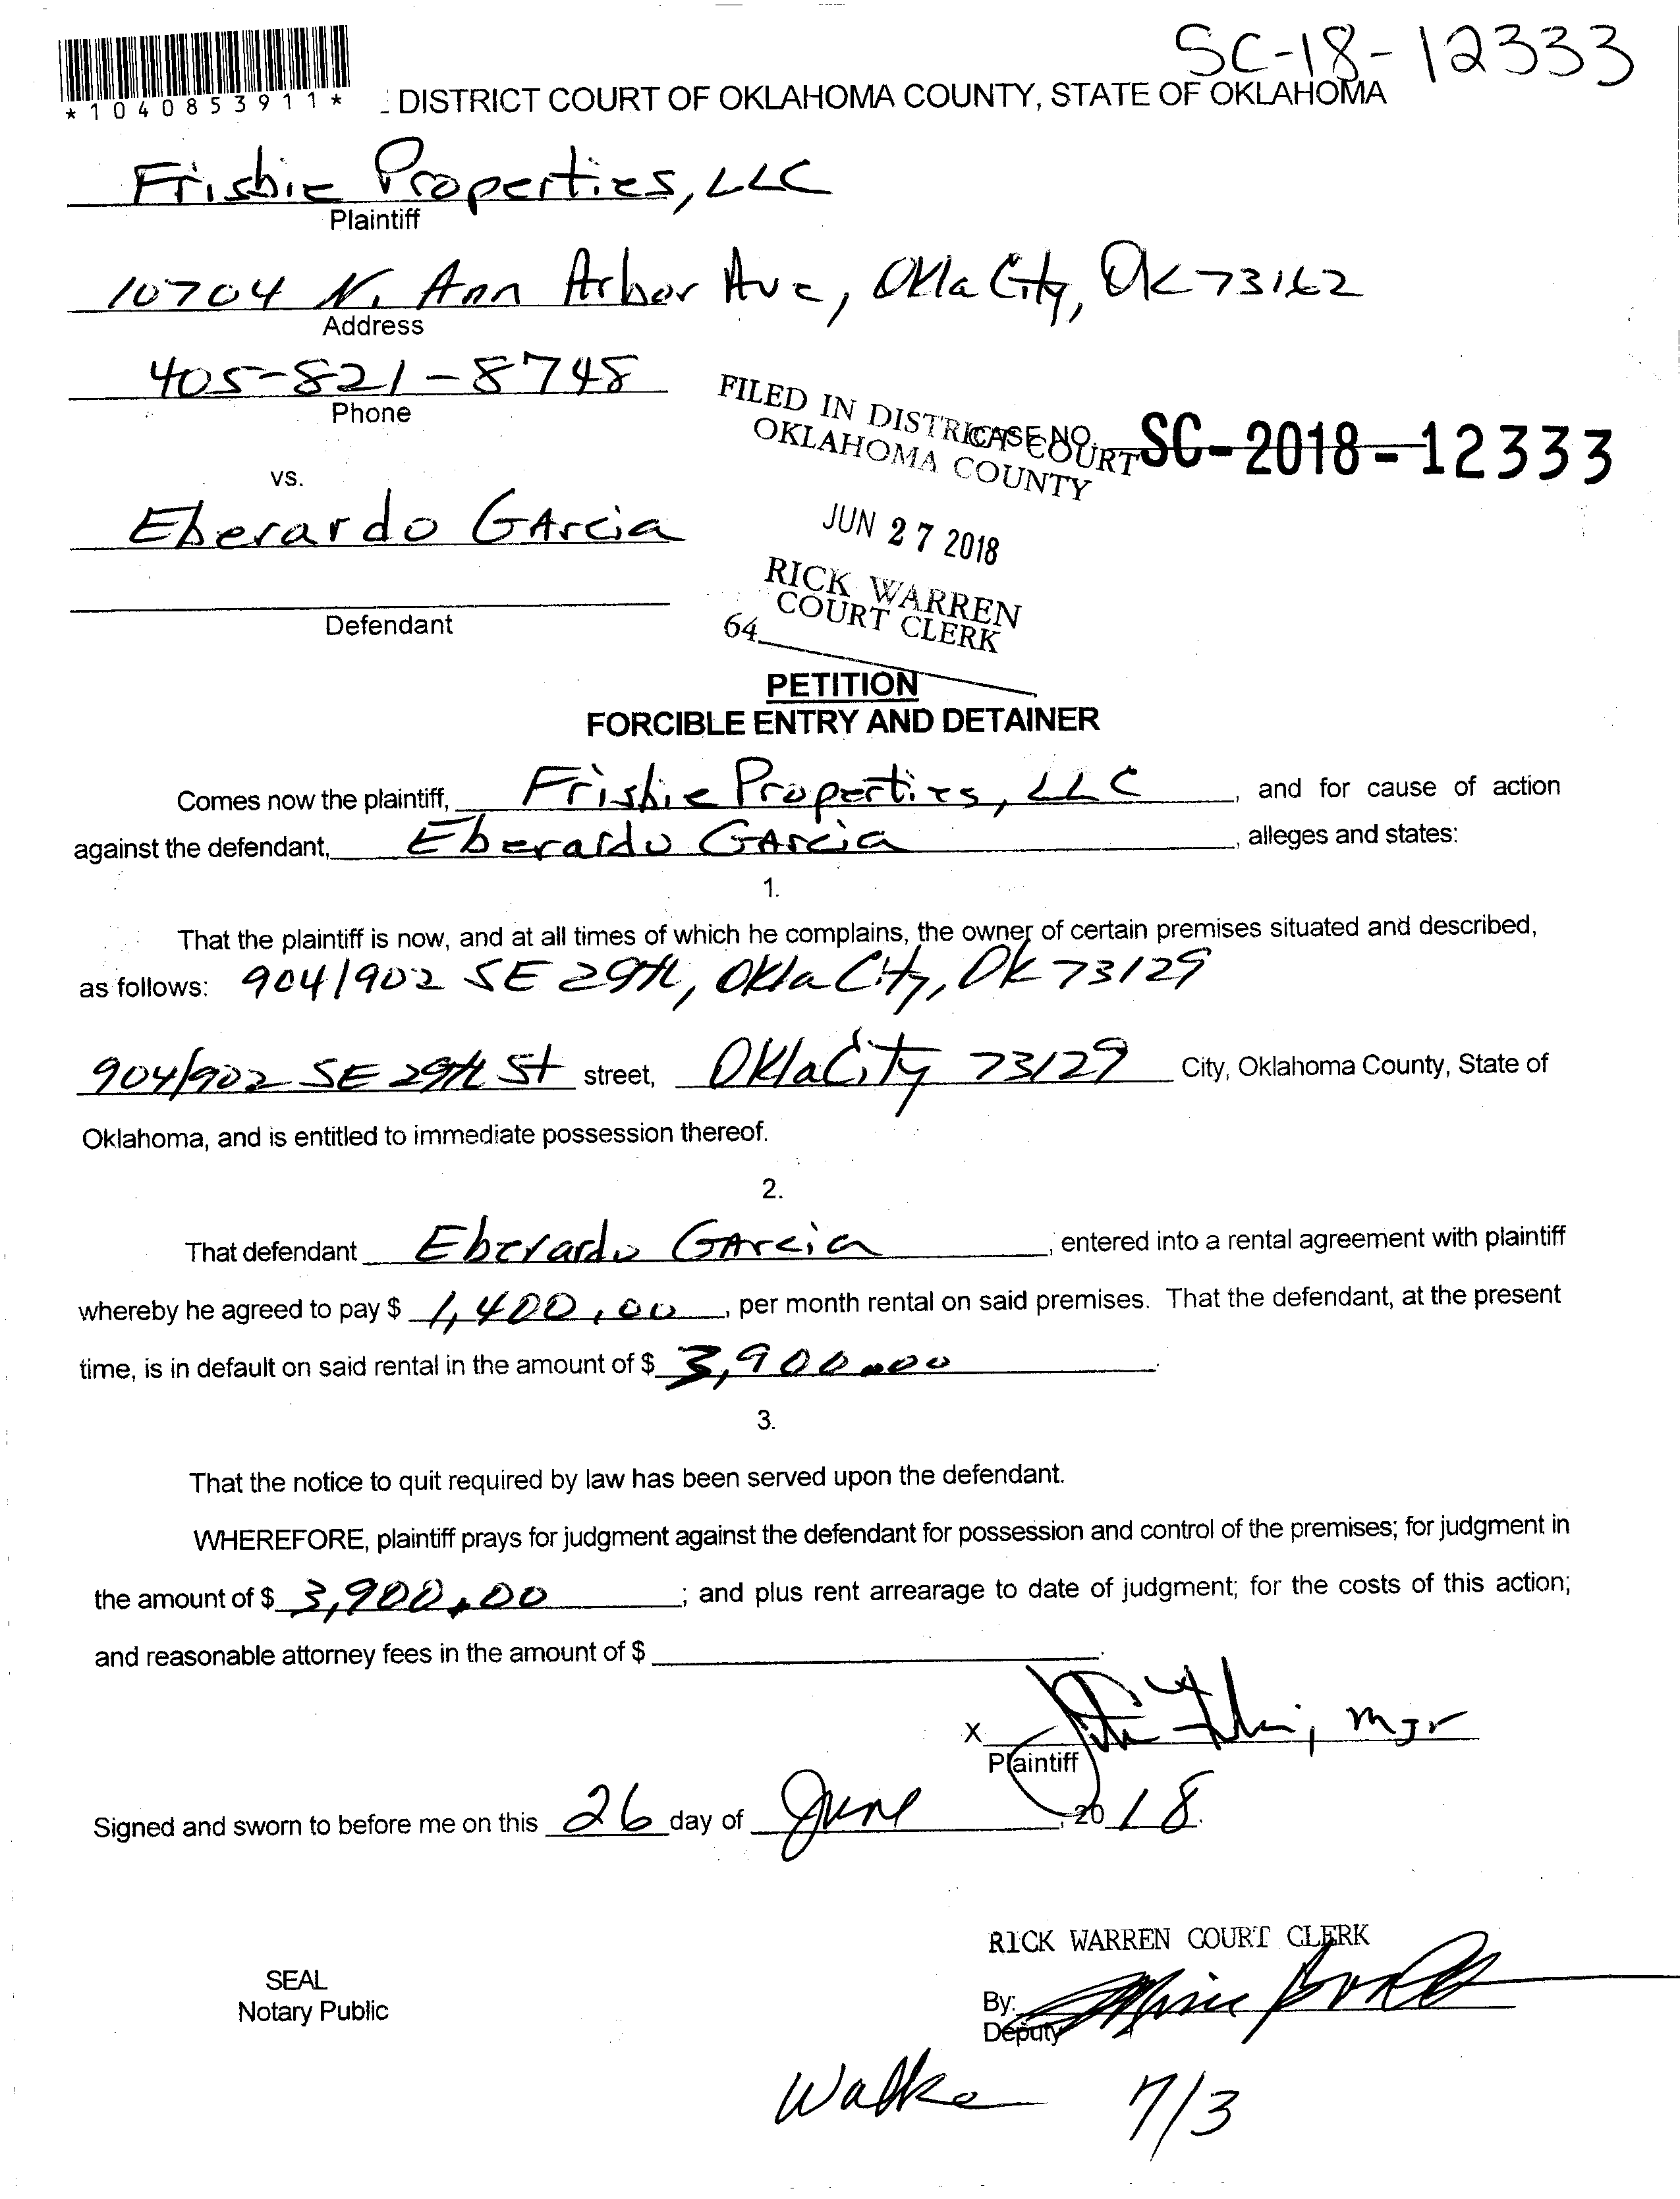 SC-18-12333
*1040853911*
DISTRICT COURT OF OKLAHOMA COUNTY, STATE OF OKLAHOMA
Frisbie Properties, LLC
Plaintiff
10704 N. Ann Arbor Ave, Okla City, OK 73162
Address
405-821-8748
Phone
FILED IN DISTRICT COURT
OKLAHOMA COUNTY
CASE NO. SC-2018-12333
vs.
Eberardo GArcia
JUN 27 2018
RICK WARREN
COURT CLERK
64
Defendant
PETITION
FORCIBLE ENTRY AND DETAINER
Comes now the plaintiff, Frisbie Properties, LLC, and for cause of action
against the defendant, Eberardo GArcia, alleges and states:
1.
That the plaintiff is now, and at all times of which he complains, the owner of certain premises situated and described,
as follows: 904/902 SE 29th, Okla City, OK 73129
904/902 SE 29th St street, Okla City 73129 City, Oklahoma County, State of
Oklahoma, and is entitled to immediate possession thereof.
2.
That defendant Eberardo GArcia, entered into a rental agreement with plaintiff
whereby he agreed to pay $ 1,400.00, per month rental on said premises. That the defendant, at the present
time, is in default on said rental in the amount of $ 3,900.00.
3.
That the notice to quit required by law has been served upon the defendant.
WHEREFORE, plaintiff prays for judgment against the defendant for possession and control of the premises; for judgment in
the amount of $ 3,900.00; and plus rent arrearage to date of judgment; for the costs of this action;
and reasonable attorney fees in the amount of $
X , mgr
Plaintiff
Signed and sworn to before me on this 26 day of June, 20 18.
RICK WARREN COURT CLERK
SEAL
Notary Public
By:
Deputy
7/3